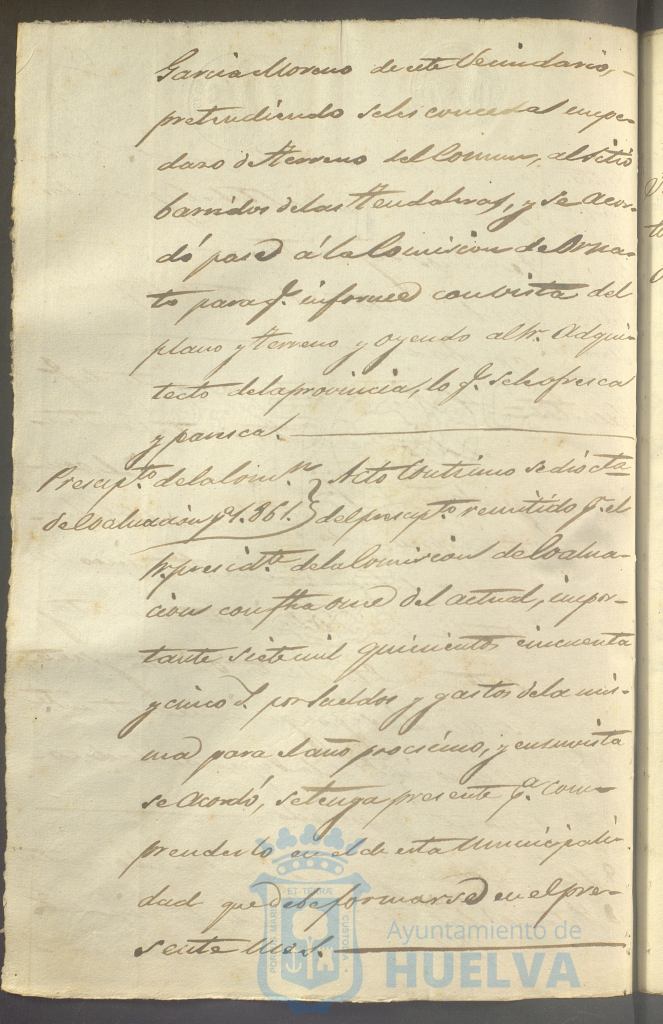 Garcia Moreno de este Vecindario,
pretendiendo se les conceda un pe-
dazo de terreno del Comun, al sitio
barridos de las Tendaleras, y se Acor-
dó pase á la Comision de Orna-
to para q.e informe con vista del
plano y terreno y oyendo al Sr. Adqui-
tecto de la provincia, lo q.e se le ofresca
y paresca.
Presup.to de la Com.n
de Evaluacion p.a 1.861.
Acto Continuo se dio cta
del presup.to remitido p.r el
Sr. presid.te de la Comision de Evalua-
cion con fha once del actual, impor-
tante siete mil quinientos cincuenta
y cinco r.s por sueldos y gastos de la mis-
ma para el año procsimo, y en su vista
se Acordó, se tenga presente p.a com-
prenderlo en el de esta Municipali-
dad que debe formarse en el pre-
sente Mes.
PORTUS MARIS ET TERRÆ CUSTODIA
Ayuntamiento de
HUELVA